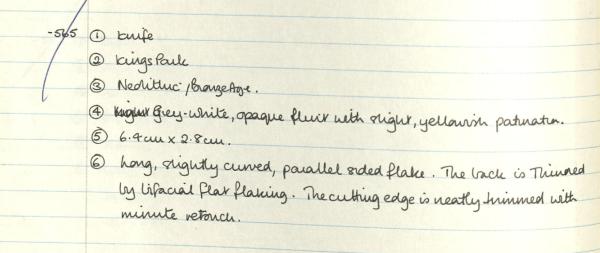 -565 ① Knife
② Kings Park
③ Neolithic/Bronze Age.
④ Grey-white, opaque flint with slight, yellowish patination.
⑤ 6.4cm x 2.8cm.
⑥ Long, slightly curved, parallel sided flake. The back is Thinned
by bifacial flat flaking. The cutting edge is neatly trimmed with
minute retouch.